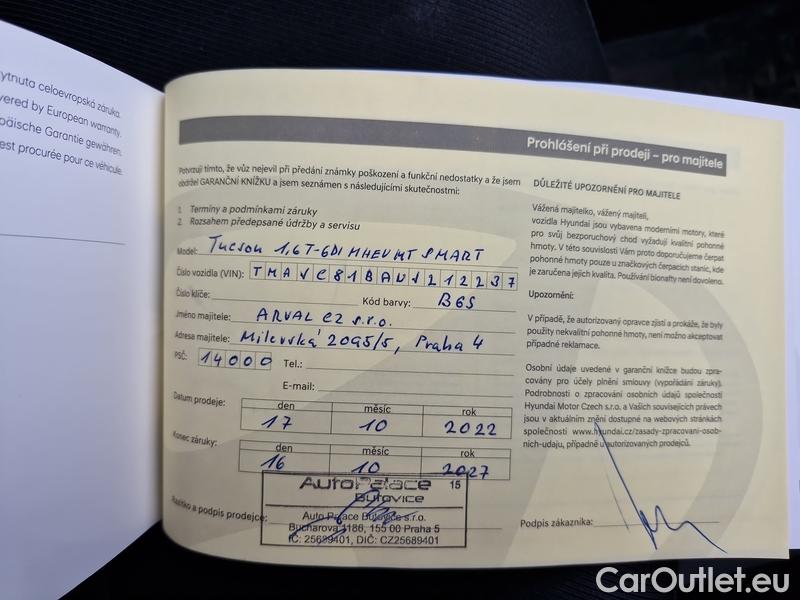 ytnuta celoevropská záruka.
vered by European warranty.
päische Garantie gewähren.
est procurée pour ce véhicule.
Prohlášení při prodeji – pro majitele
Potvrzuji tímto, že vůz nejevil při předání známky poškození a funkční nedostatky a že jsem
obdržel GARANČNÍ KNÍŽKU a jsem seznámen s následujícími skutečnostmi:
1. Termíny a podmínkami záruky
2. Rozsahem předepsané údržby a servisu
Model: Tucson 1,6 T-GDI MHEV MT SMART
Číslo vozidla (VIN): TMAJC81BAUJ212237
Číslo klíče:
Kód barvy: B6S
Jméno majitele: ARVAL CZ s.r.o.
Adresa majitele: Milevská 2095/5, Praha 4
PSČ: 14000 Tel.:
E-mail:
Datum prodeje: den měsíc rok
17 10 2022
Konec záruky: den měsíc rok
16 10 2027
Razítko a podpis prodejce:
Auto Palace 15
Butovice
Auto Palace Butovice s.r.o.
Bucharova 1186, 155 00 Praha 5
IČ: 25689401, DIČ: CZ25689401
DŮLEŽITÉ UPOZORNĚNÍ PRO MAJITELE
Vážená majitelko, vážený majiteli,
vozidla Hyundai jsou vybavena moderními motory, které
pro svůj bezporuchový chod vyžadují kvalitní pohonné
hmoty. V této souvislosti Vám proto doporučujeme čerpat
pohonné hmoty pouze u značkových čerpacích stanic, kde
je zaručena jejich kvalita. Používání bionafty není dovoleno.
Upozornění:
V případě, že autorizovaný opravce zjistí a prokáže, že byly
použity nekvalitní pohonné hmoty, není možno akceptovat
případné reklamace.
Osobní údaje uvedené v garanční knížce budou zpra-
covány pro účely plnění smlouvy (vypořádání záruky).
Podrobnosti o zpracování osobních údajů společností
Hyundai Motor Czech s.r.o. a Vašich souvisejících právech
jsou v aktuálním znění dostupné na webových stránkách
společnosti www.hyundai.cz/zasady-zpracovani-osob-
nich-udaju, případně u autorizovaných prodejců.
Podpis zákazníka:
CarOutlet.eu